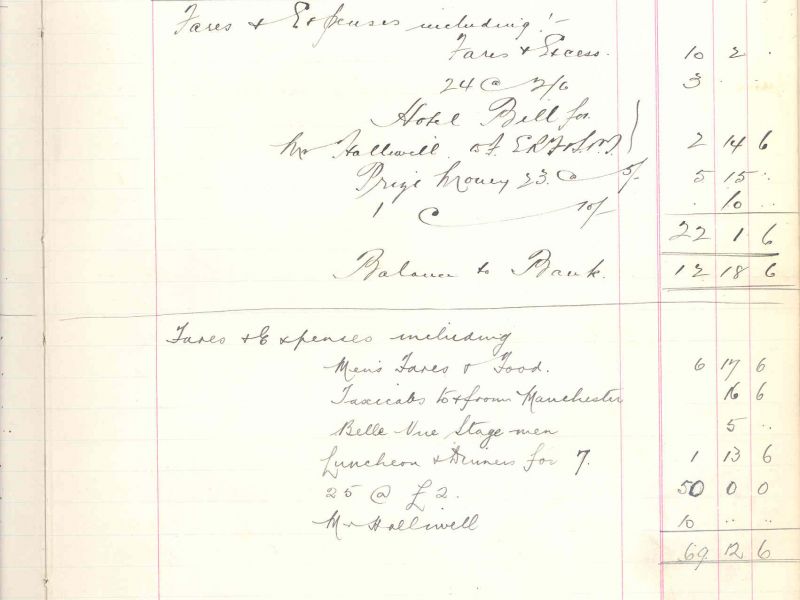 Fares & Expenses including :-
Fares & Excess. 10 2 .
24 @ 2/6 3 . .
Hotel Bill for
Mr Halliwill of 2 14 6
Prize Money 23 @ 5/- 5 15 ..
1 @ 10/- . 10 ..
22 1 6
Balance to Bank. 12 18 6
Fares & Expenses including
Men's Fares & Food. 6 17 6
Taxicabs to & from Manchester 16 6
Belle Vue Stage men 5 ..
Luncheon & Dinners for 7. 1 13 6
25 @ £2. 50 0 0
Mr Halliwell 10 .. ..
69 12 6